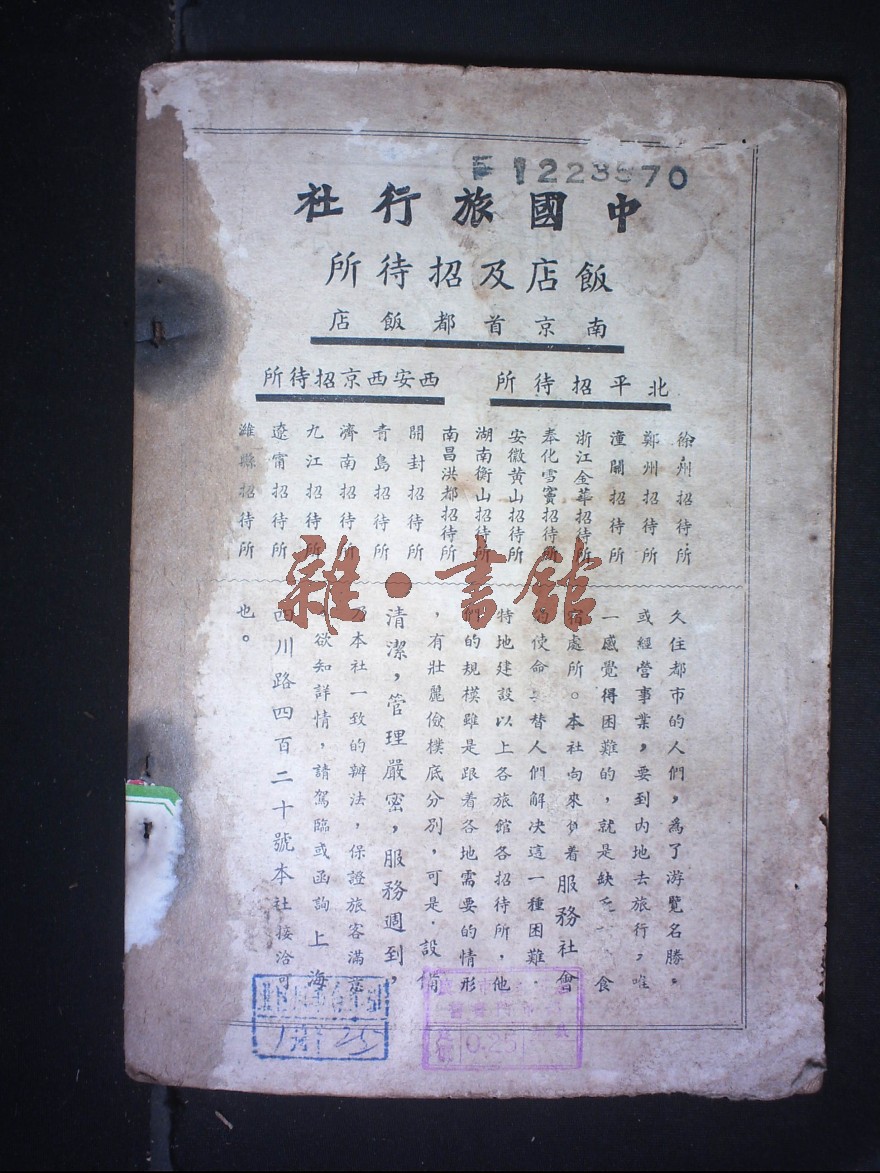 F 1223570
中國旅行社
飯店及招待所
南京首都飯店
北平招待所
西安西京招待所
徐州招待所
鄭州招待所
潼關招待所
浙江金華招待所
奉化雪竇招待所
安徽黃山招待所
湖南衡山招待所
南昌洪都招待所
開封招待所
青島招待所
濟南招待所
九江招待所
遼甯招待所
濰縣招待所
久住都市的人們，為了游覽名勝。
或經營事業，要到内地去旅行，唯
一感覺得困難的，就是缺乏食
宿處所。本社向來負着服務社會
的使命替人們解决這一種困難．
特地建設以上各旅館各招待所，他
們的規模雖是跟着各地需要的情形
，有壯麗儉樸底分別，可是．設備
清潔，管理嚴密，服務週到，
乃本社一致的辦法，保證旅客滿意
欲知詳情，請駕臨或函詢上海
四川路四百二十號本社接洽可
也。
雜·書館
0.25